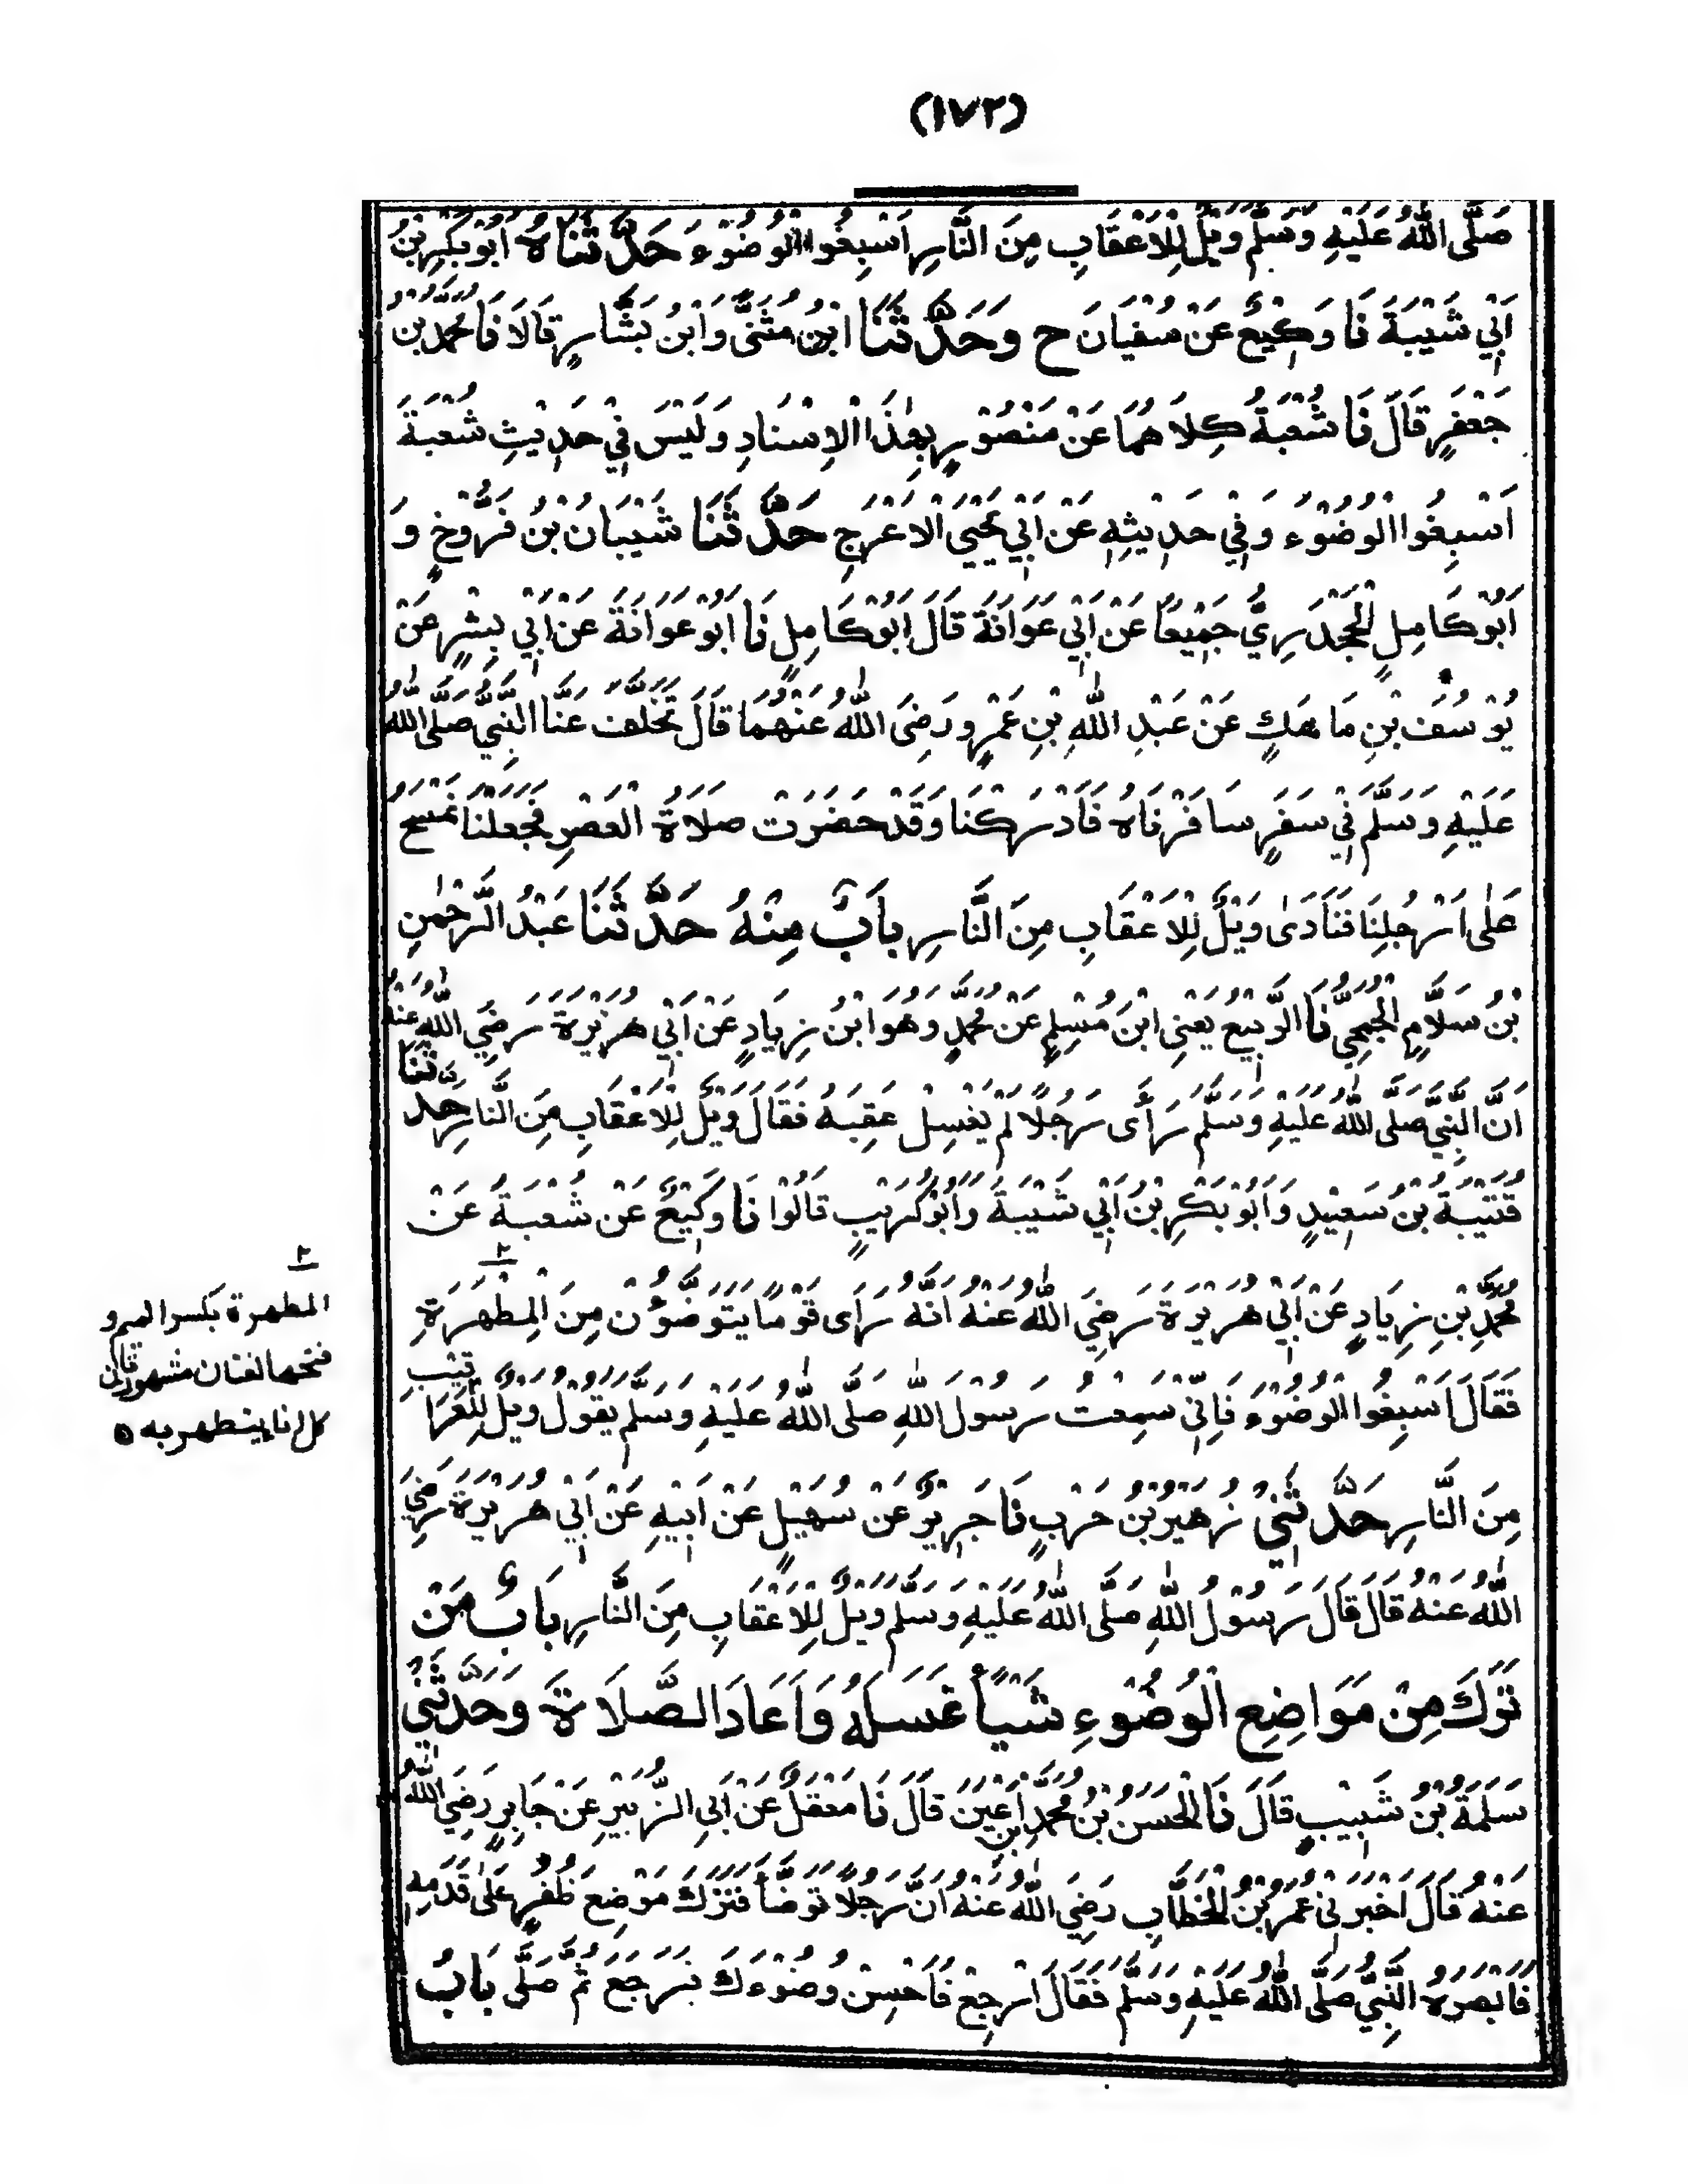 (١٧٢)
صَلَّى اللهُ عَلَيْهِ وَسَلَّمَ وَيْلٌ لِلْاَعْقَابِ مِنَ النَّارِ اَسْبِغُوا الْوُضُوْءَ حَدَّثَنَاهُ اَبُوْبَكْرِ بْنُ
اَبِيْ شَيْبَةَ نَا وَكِيْعٌ عَنْ سُفْيَانَ ح وَحَدَّثَنَا ابْنُ مُثَنَّى وَابْنُ بَشَّارٍ قَالَا نَا مُحَمَّدُ بْنُ
جَعْفَرٍ قَالَ نَا شُعْبَةُ كِلَاهُمَا عَنْ مَنْصُوْرٍ بِهٰذَا الْاِسْنَادِ وَلَيْسَ فِيْ حَدِيْثِ شُعْبَةَ
اَسْبِغُوا الْوُضُوْءَ وَفِيْ حَدِيْثِهِ عَنْ اَبِيْ يَحْيَى الْاَعْرَجِ حَدَّثَنَا شَيْبَانُ بْنُ فَرُّوْخٍ وَ
اَبُوْكَامِلٍ الْجَحْدَرِيُّ جَمِيْعًا عَنْ اَبِيْ عَوَانَةَ قَالَ اَبُوْكَامِلٍ نَا اَبُوْ عَوَانَةَ عَنْ اَبِيْ بِشْرٍ عَنْ
يُوْسُفَ بْنِ مَاهَكٍ عَنْ عَبْدِ اللهِ بْنِ عَمْرٍو رَضِيَ اللهُ عَنْهُمَا قَالَ تَخَلَّفَ عَنَّا النَّبِيُّ صَلَّى اللهُ
عَلَيْهِ وَسَلَّمَ فِيْ سَفَرٍ سَافَرْنَاهُ فَاَدْرَكَنَا وَقَدْ حَضَرَتْ صَلَاةُ الْعَصْرِ فَجَعَلْنَا نَمْسَحُ
عَلٰى اَرْجُلِنَا فَنَادٰى وَيْلٌ لِلْاَعْقَابِ مِنَ النَّارِ بَابٌ مِنْهُ حَدَّثَنَا عَبْدُ الرَّحْمٰنِ
بْنُ سَلَّامٍ الْجُمَحِيُّ نَا الرَّبِيْعُ يَعْنِي ابْنَ مُسْلِمٍ عَنْ مُحَمَّدٍ وَهُوَ ابْنُ زِيَادٍ عَنْ اَبِيْ هُرَيْرَةَ رَضِيَ اللهُ عَنْهُ
اَنَّ النَّبِيَّ صَلَّى اللهُ عَلَيْهِ وَسَلَّمَ رَأَى رَجُلًا لَمْ يَغْسِلْ عَقِبَهُ فَقَالَ وَيْلٌ لِلْاَعْقَابِ مِنَ النَّارِ حَدَّثَنَا
قُتَيْبَةُ بْنُ سَعِيْدٍ وَاَبُوْ بَكْرِ بْنُ اَبِيْ شَيْبَةَ وَاَبُوْكُرَيْبٍ قَالُوْا نَا وَكِيْعٌ عَنْ شُعْبَةَ عَنْ
مُحَمَّدِ بْنِ زِيَادٍ عَنْ اَبِيْ هُرَيْرَةَ رَضِيَ اللهُ عَنْهُ اَنَّهُ رَأَى قَوْمًا يَتَوَضَّؤُنَ مِنَ الْمِطْهَرَةِ ٢
فَقَالَ اَسْبِغُوا الْوُضُوْءَ فَاِنِّيْ سَمِعْتُ رَسُوْلَ اللهِ صَلَّى اللهُ عَلَيْهِ وَسَلَّمَ يَقُوْلُ وَيْلٌ لِلْعَرَاقِيْبِ
مِنَ النَّارِ حَدَّثَنِيْ زُهَيْرُ بْنُ حَرْبٍ نَا جَرِيْرٌ عَنْ سُهَيْلٍ عَنْ اَبِيْهِ عَنْ اَبِيْ هُرَيْرَةَ رَضِيَ
اللهُ عَنْهُ قَالَ قَالَ رَسُوْلُ اللهِ صَلَّى اللهُ عَلَيْهِ وَسَلَّمَ وَيْلٌ لِلْاَعْقَابِ مِنَ النَّارِ بَابُ مَنْ
تَرَكَ مِنْ مَوَاضِعِ الْوُضُوْءِ شَيْأً غَسَلَهُ وَاَعَادَ الصَّلَاةَ وَحَدَّثَنِيْ
سَلَمَةُ بْنُ شَبِيْبٍ قَالَ نَا الْحَسَنُ بْنُ مُحَمَّدِ بْنِ اَعْيَنَ قَالَ نَا مَعْقِلٌ عَنْ اَبِي الزُّبَيْرِ عَنْ جَابِرٍ رَضِيَ اللهُ
عَنْهُ قَالَ اَخْبَرَنِيْ عُمَرُ بْنُ الْخَطَّابِ رَضِيَ اللهُ عَنْهُ اَنَّ رَجُلًا تَوَضَّأَ فَتَرَكَ مَوْضِعَ ظُفُرٍ عَلٰى قَدَمِهِ
فَاَبْصَرَهُ النَّبِيُّ صَلَّى اللهُ عَلَيْهِ وَسَلَّمَ فَقَالَ ارْجِعْ فَاَحْسِنْ وُضُوْءَكَ فَرَجَعَ ثُمَّ صَلَّى بَابُ
٢
المطهرة بكسر الميم و
فتحها لغتان مشهورتان
كل اناء يتطهر به ٥